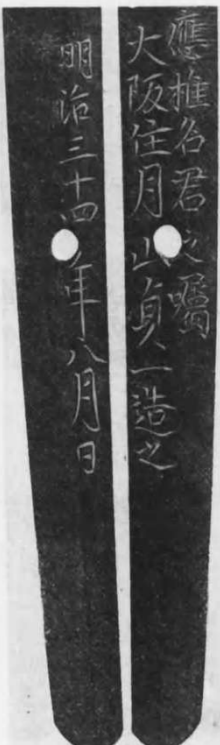 應椎名君之囑
大阪住月山貞一造之
明治三十四年八月日